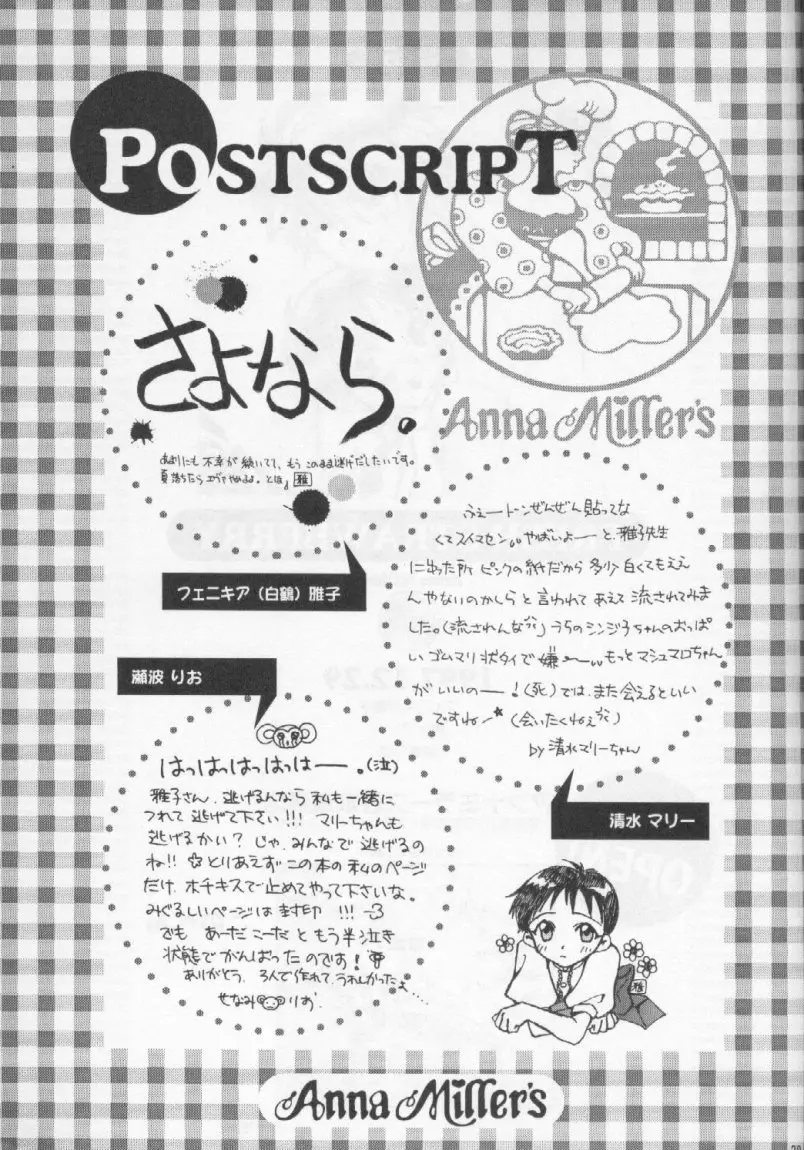 POSTSCRIPT
さよなら。
あまりにも不幸が続いてて、もうこのまま逃げだしたいです。
夏落ちたらエヴァやめるよ。とほ。 雅
フェニキア(白鶴)雅子
Anna Miller's
ふぇートーンぜんぜん貼ってな
くてスイマセン。やばいよーーと、雅子先生
に出った所ピンクの紙だから多少白くてもええ
んやないのかしらと言われてあえて流されてみま
した。(流されんな)うちのシンジ子ちゃんのおっぱ
いゴムマリ状タイで嫌ーもっとマシュマロちゃん
がいいのー!(死)では、また会えるといい
ですね★(会いたくねぇ)
by 清水マリーちゃん
清水 マリー
瀬波 りお
はっはっはっはっはーー。(泣)
雅子さん、逃げるんなら私も一緒に
つれて逃げて下さい!!! マリーちゃんも
逃げるかい? じゃ、みんなで逃げるの
ね!! ☆とりあえずこの本の私のページ
だけ、ホチキスで止めてやって下さいな。
みぐるしいページは封印!!!
でも あーだこーだともう半泣き
状態でがんばったのです!
ありがとう、3人で作れて、うれしかったよ…
せなみ りお
雅
Anna Miller's